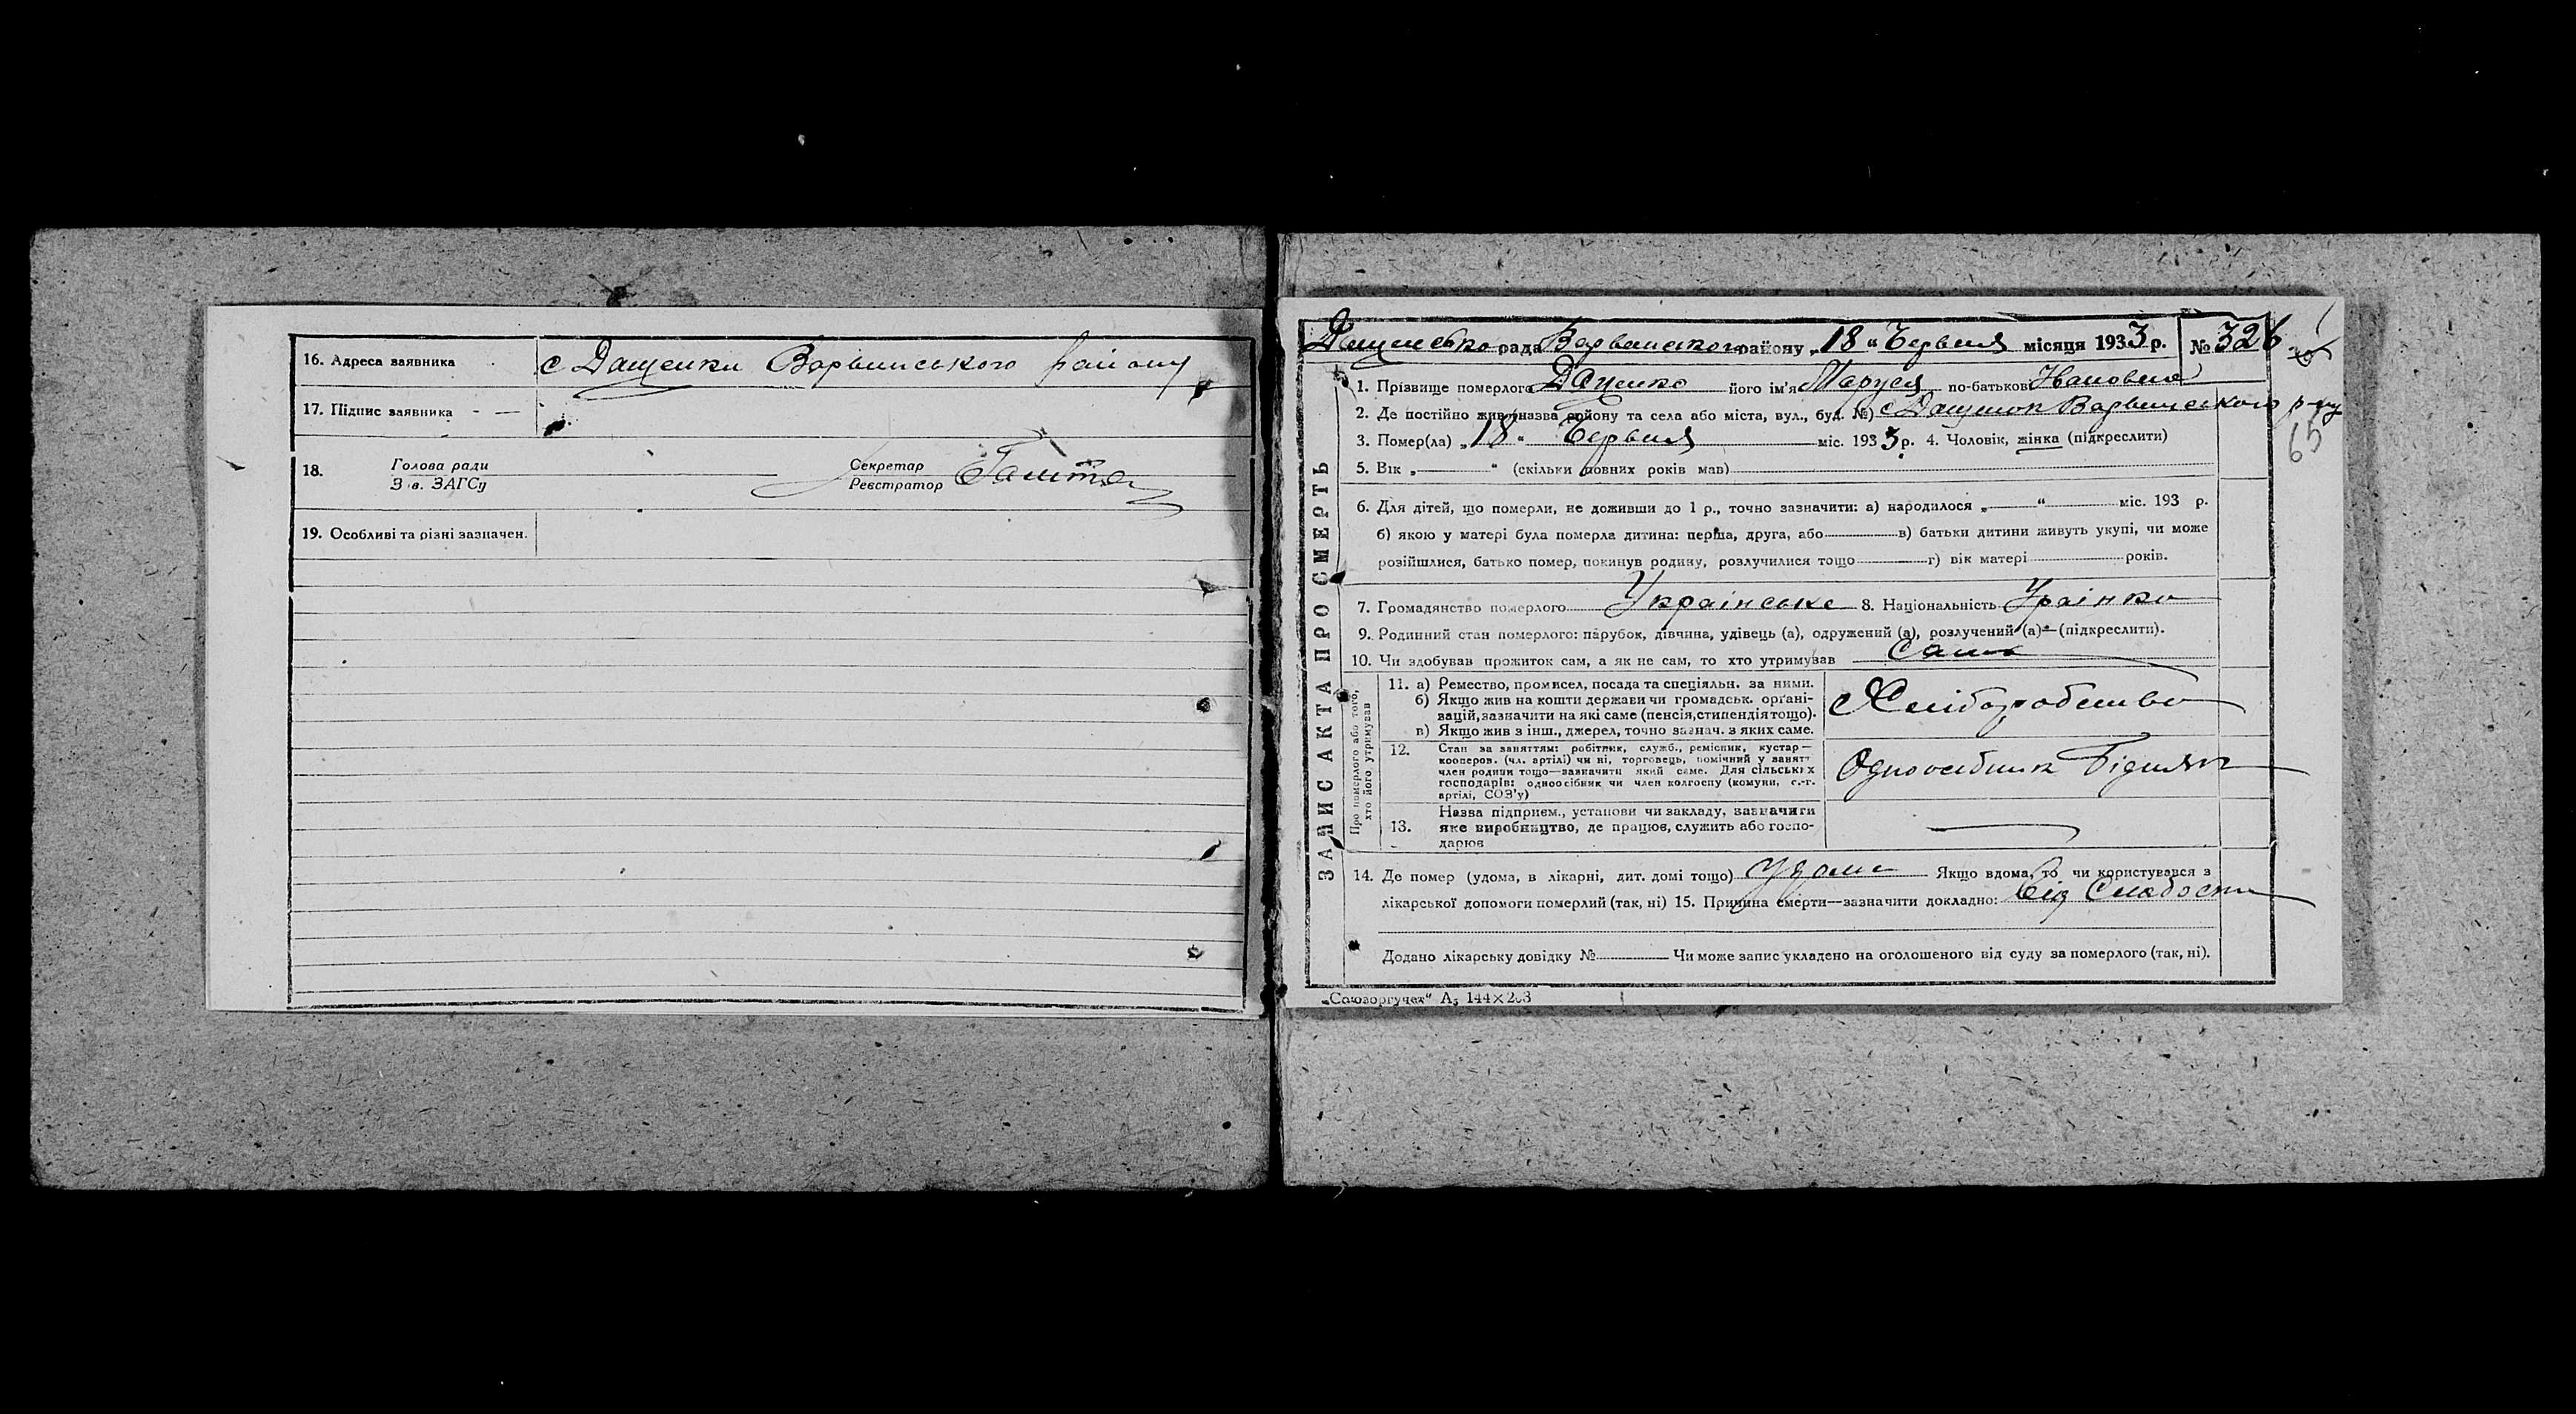 16. Адреса заявника с Дащенки Варвинського району
17. Підпис заявника - —
18. Голова ради Секретар
Зав. ЗАГСу Реєстратор
19. Особливі та різні зазначен.
ЗАПИС АКТА ПРО СМЕРТЬ
Дащенсько рада Варвинского району „18" Червня місяця 1933 р. № 326
1. Прізвище померлого Даценко його ім'я Маруся по-батькові Івановна
2. Де постійно жив (назва району та села або міста, вул., буд. №) с Дащенки Варвинського р-ну
65
3. Помер(ла) „18" Червня міс. 1933 р. 4. Чоловік, жінка (підкреслити)
5. Вік „ " (скільки повних років мав)
6. Для дітей, що померли, не доживши до 1 р., точно зазначити: а) народилося „ " міс. 193 р.
б) якою у матері була померла дитина: перша, друга, або в) батьки дитини живуть укупі, чи може
розійшлися, батько помер, покинув родину, розлучилися тощо г) вік матері років.
7. Громадянство померлого Українське 8. Національність Ураінка
9. Родинний стан померлого: парубок, дівчина, удівець (а), одружений (а), розлучений (а)—(підкреслити).
10. Чи здобував прожиток сам, а як не сам, то хто утримував Сама
Про померлого або того,
хто його утримував
11. а) Ремество, промисел, посада та спеціяльн. за ними.
б) Якщо жив на кошти держави чи громадськ. органі-
зацій, зазначити на які саме (пенсія, стипендія тощо).
в) Якщо жив з інш., джерел, точно зазнач. з яких саме.
Хліборобство
12. Стан за заняттям: робітник, служб., ремісник, кустар—
кооперов. (чл. артілі) чи ні, торговець, помічний у занятт
член родини тощо—зазначити який саме. Для сільських
господарів: одноосібник чи член колгоспу (комуни, с.-г.
артілі, СОЗ'у)
Одноосібник Бідняк
13. Назва підприєм., установи чи закладу, зазначити
яке виробництво, де працює, служить або госпо-
дарює
14. Де помер (удома, в лікарні, дит. домі тощо) Удома Якщо вдома, то чи користувався з
лікарської допомоги померлий (так, ні) 15. Причина смерти—зазначити докладно: Від Слабости
Додано лікарську довідку № Чи може запис укладено на оголошеного від суду за померлого (так, ні).
„Союзоргучет" А₅ 144×203